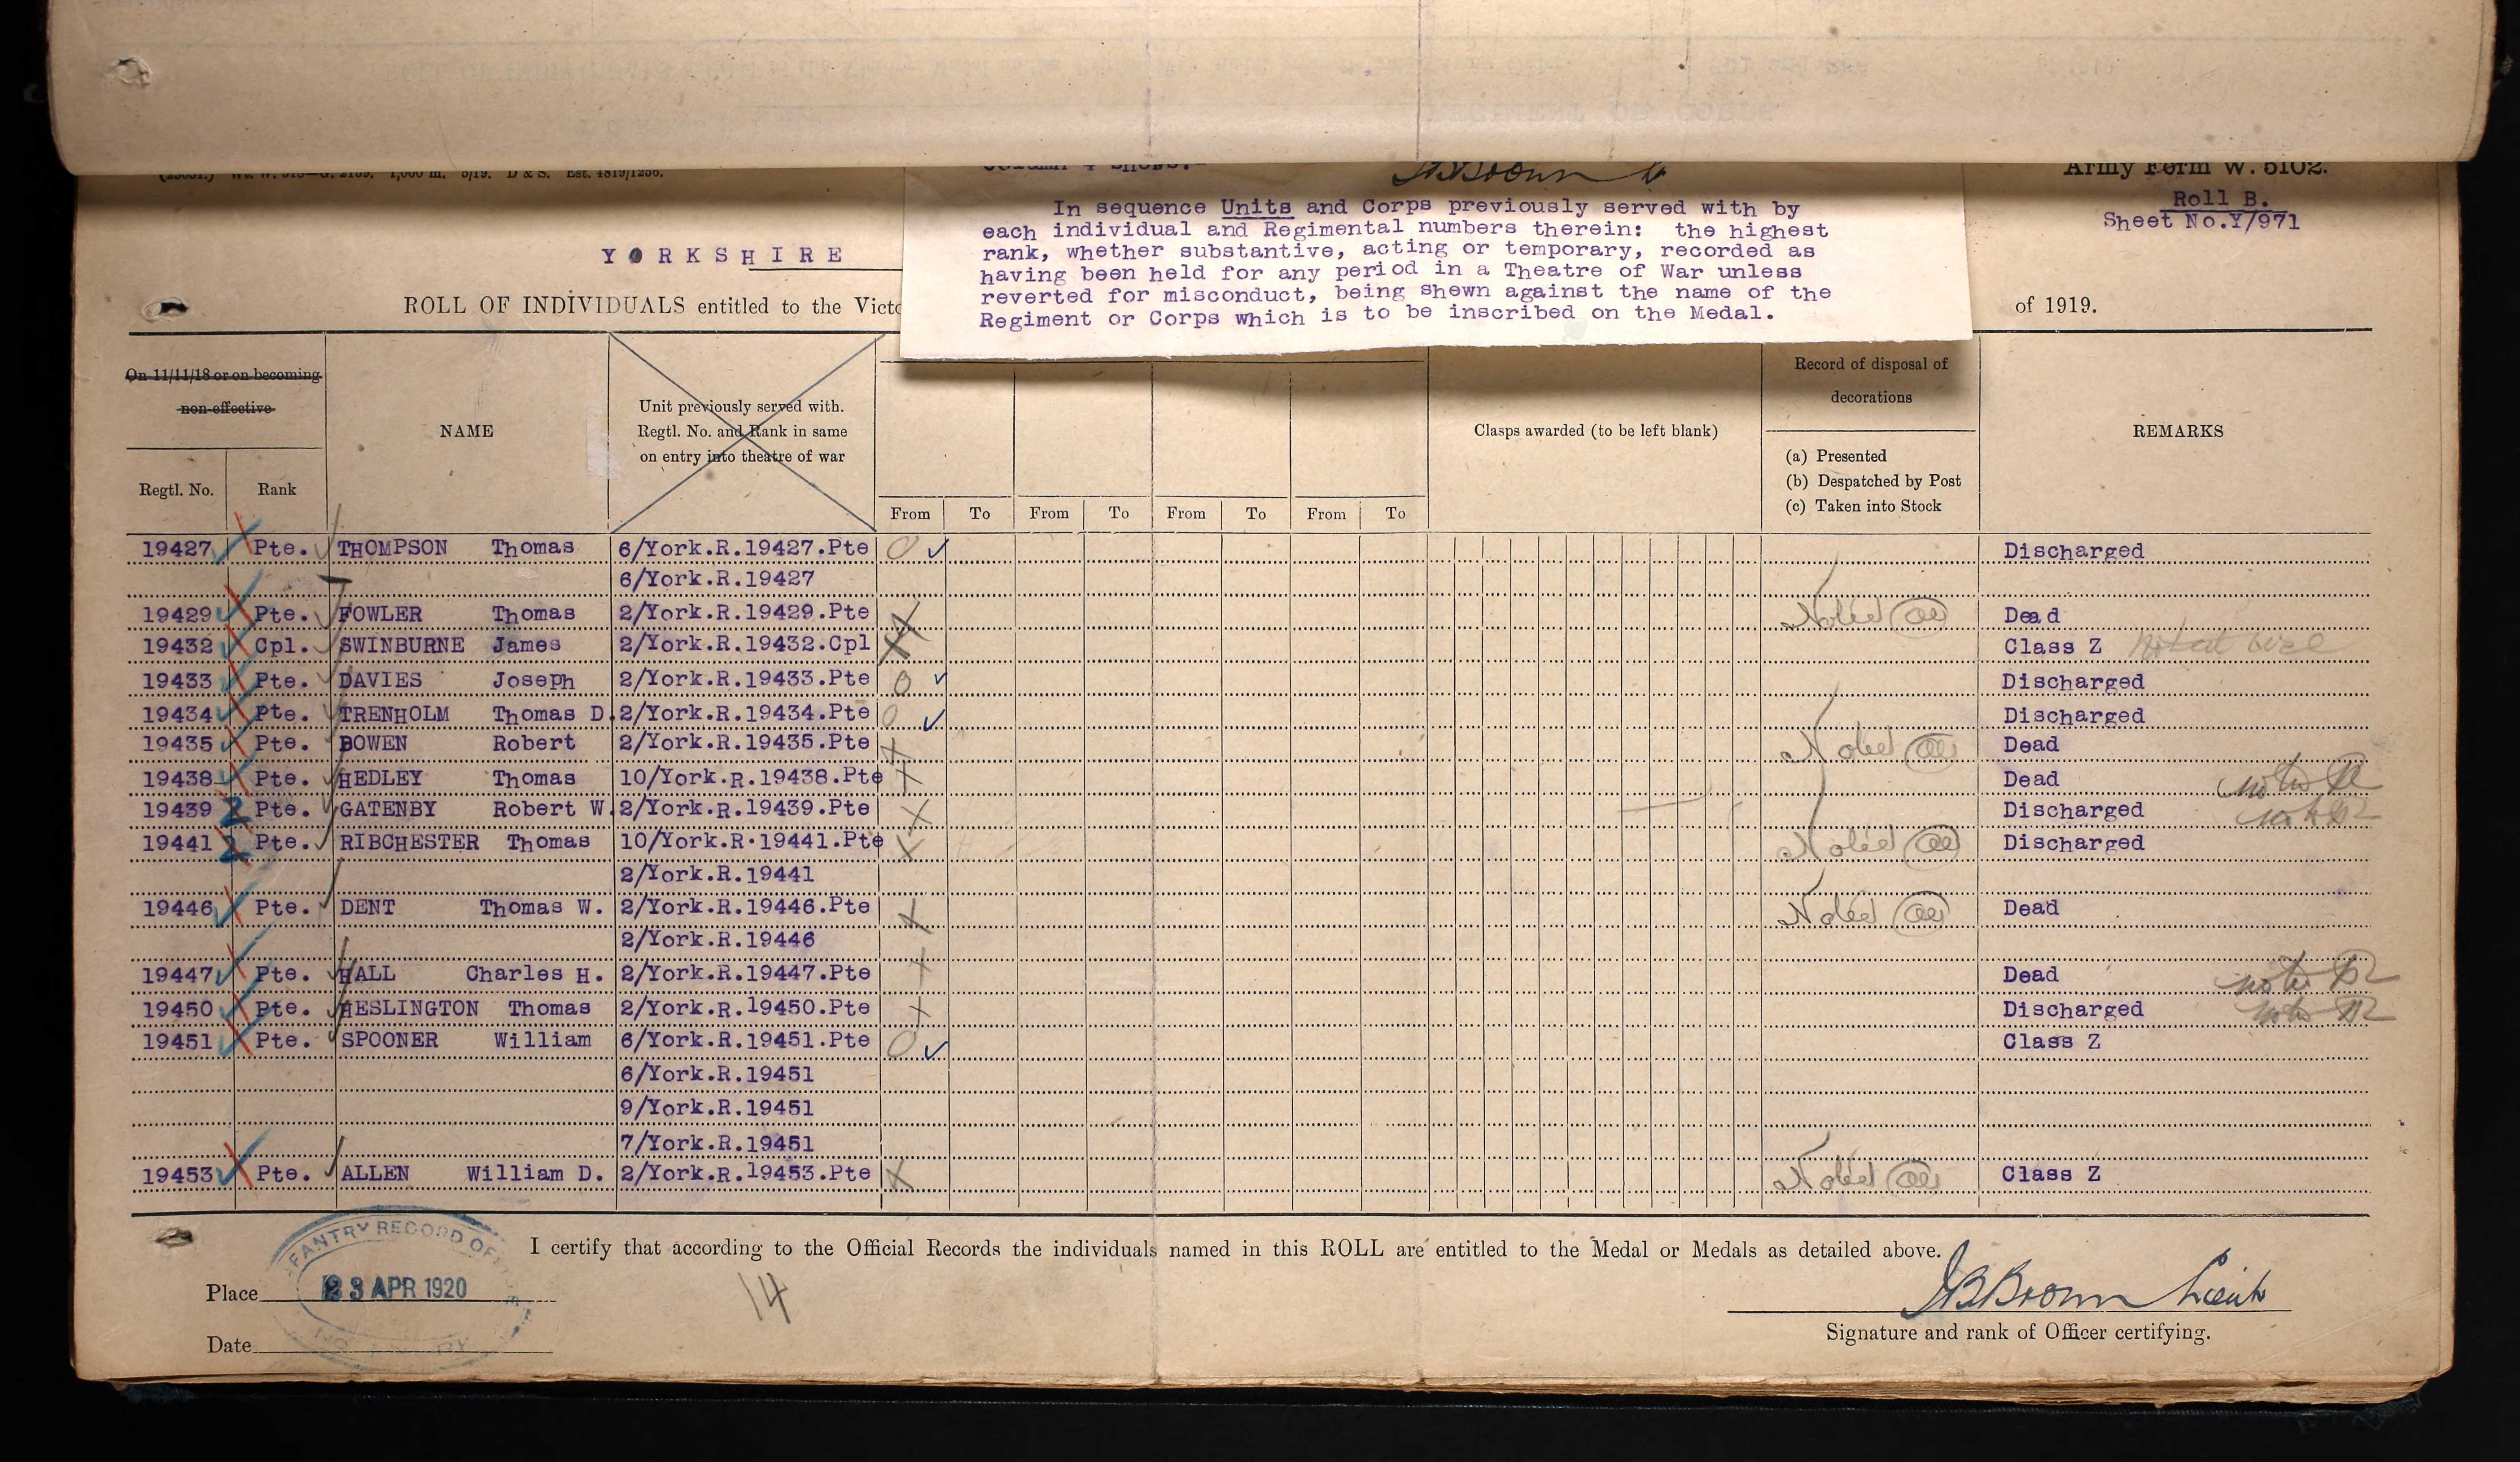 Column 4 shows:-
Army Form W. 5102.
Roll B.
Sheet No.Y/971
In sequence Units and Corps previously served with by
each individual and Regimental numbers therein: the highest
rank, whether substantive, acting or temporary, recorded as
having been held for any period in a Theatre of War unless
reverted for misconduct, being shewn against the name of the
Regiment or Corps which is to be inscribed on the Medal.
YORKSHIRE
ROLL OF INDIVIDUALS entitled to the Victo of 1919.
On 11/11/18 or on becoming
non-effective
Regtl. No. Rank
NAME
Unit previously served with.
Regtl. No. and Rank in same
on entry into theatre of war
From To From To From To From To
Clasps awarded (to be left blank)
Record of disposal of
decorations
(a) Presented
(b) Despatched by Post
(c) Taken into Stock
REMARKS
19427 Pte. THOMPSON Thomas 6/York.R.19427.Pte Discharged
6/York.R.19427
19429 Pte. FOWLER Thomas 2/York.R.19429.Pte Noted Dead
19432 Cpl. SWINBURNE James 2/York.R.19432.Cpl Class Z
19433 Pte. DAVIES Joseph 2/York.R.19433.Pte Discharged
19434 Pte. TRENHOLM Thomas D. 2/York.R.19434.Pte Discharged
19435 Pte. BOWEN Robert 2/York.R.19435.Pte Noted Dead
19438 Pte. HEDLEY Thomas 10/York.R.19438.Pte Dead
19439 Pte. GATENBY Robert W. 2/York.R.19439.Pte Discharged
19441 Pte. RIBCHESTER Thomas 10/York.R.19441.Pte Noted Discharged
2/York.R.19441
19446 Pte. DENT Thomas W. 2/York.R.19446.Pte Noted Dead
2/York.R.19446
19447 Pte. HALL Charles H. 2/York.R.19447.Pte Dead
19450 Pte. HESLINGTON Thomas 2/York.R.19450.Pte Discharged
19451 Pte. SPOONER William 6/York.R.19451.Pte Class Z
6/York.R.19451
9/York.R.19451
7/York.R.19451
19453 Pte. ALLEN William D. 2/York.R.19453.Pte Noted Class Z
I certify that according to the Official Records the individuals named in this ROLL are entitled to the Medal or Medals as detailed above.
FANTRY RECORD OF
Place 23 APR 1920
14
JBBrown Lieut
Signature and rank of Officer certifying.
Date